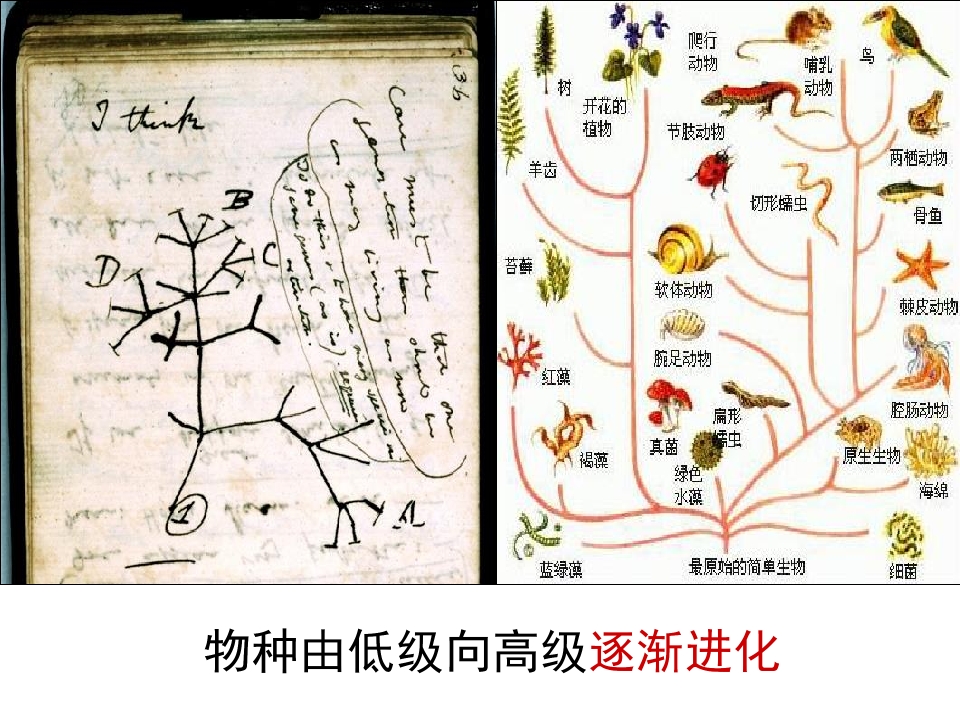 I think
B
C
D
A
1
Case must be that one
generation then should be
as many living as now
To do this & to have many species in
same genus (as is) requires
extinction.
36
爬行
动物
哺乳
动物
鸟
树
开花的
植物
节肢动物
两栖动物
羊齿
切形蠕虫
骨鱼
苔藓
软体动物
棘皮动物
腕足动物
红藻
扁形
蠕虫
腔肠动物
真菌
褐藻
原生生物
绿色
水藻
海绵
蓝绿藻
最原始的简单生物
细菌
物种由低级向高级逐渐进化